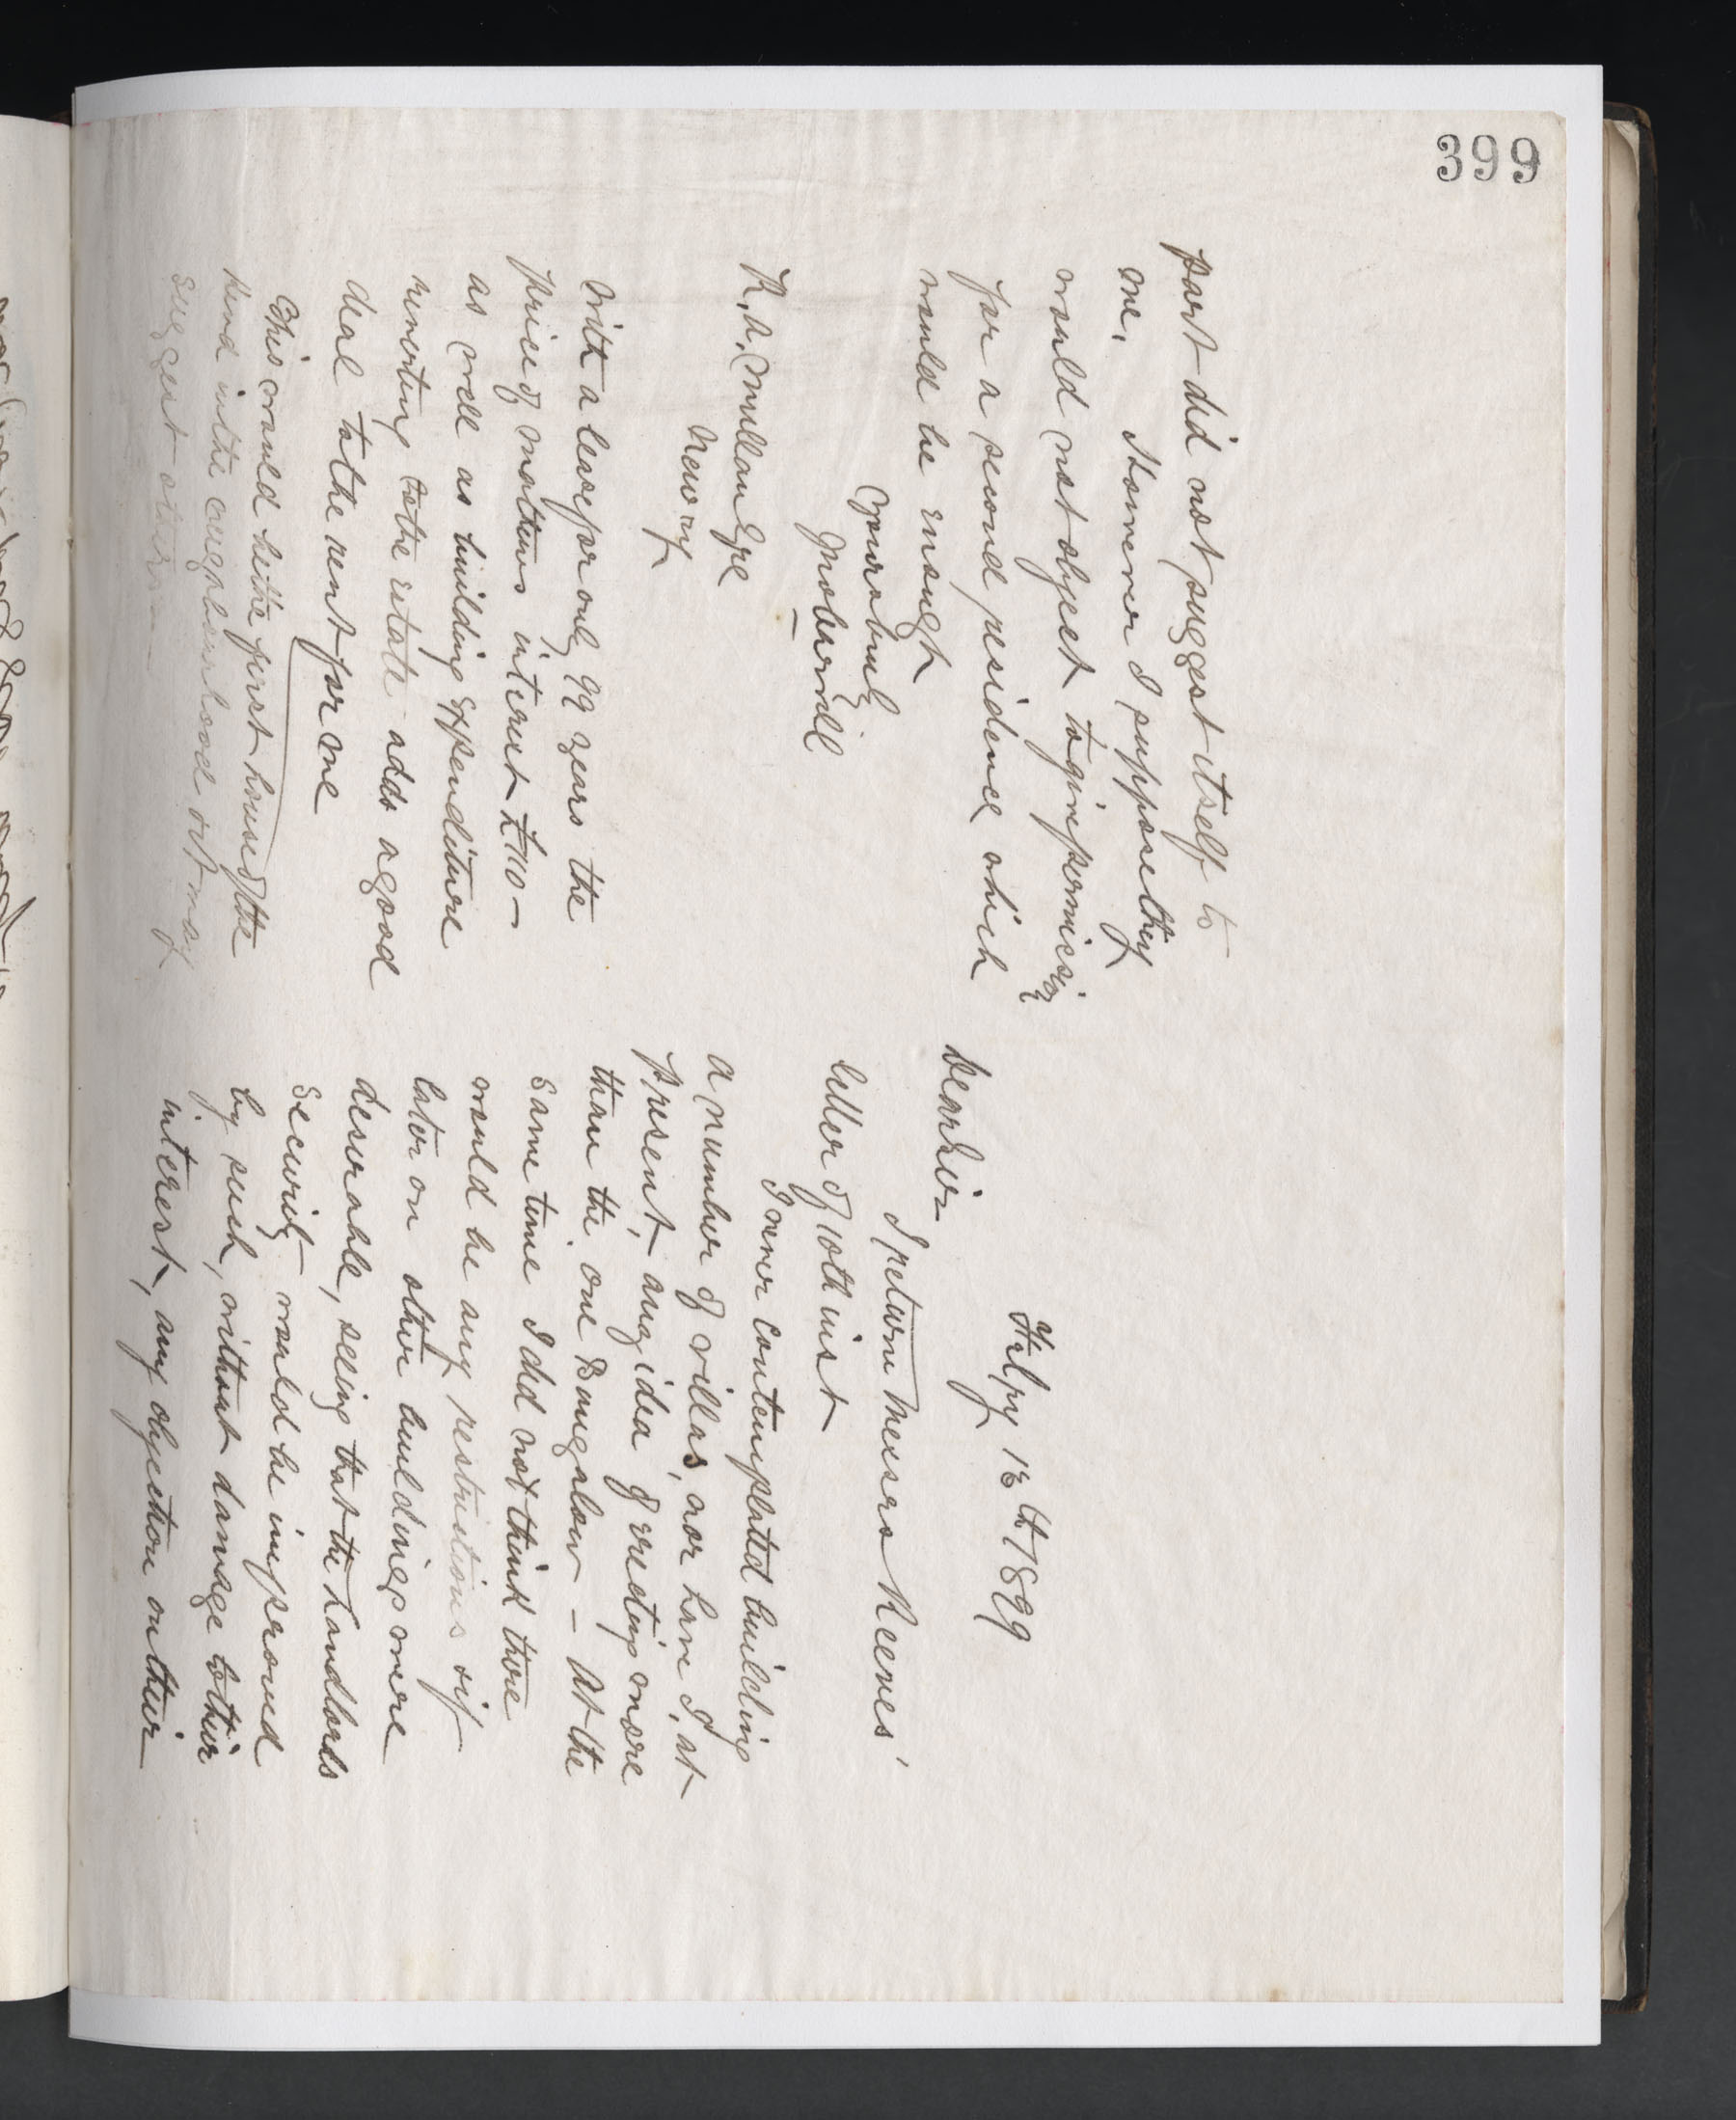 399
13th/1899
Dear Sir
I return Messrs Reeves'
letter of 10th inst
I never contemplated building
a number of villas, nor have I, at
present, any idea of erecting more
than the one Bungalow – At the
same time I did not think there
would be any restrictions if
later on other buildings were
desirable, seeing that the Landlords
security would be improved
by such, without damage to their
interest, any objection on their
part did not suggest itself to
me. However I suppose they
would not object to give permission
for a second residence which
would be enough
Yours truly
R. A. Mullan Esqe
Newry
With a lease for only 99 years the
price of Mathews interest £110 –
as well as building expenditure
reverting to the estate adds a good
deal to the rent for me
This would be the first house of the
kind in the neighbourhood & it may
suggest others –